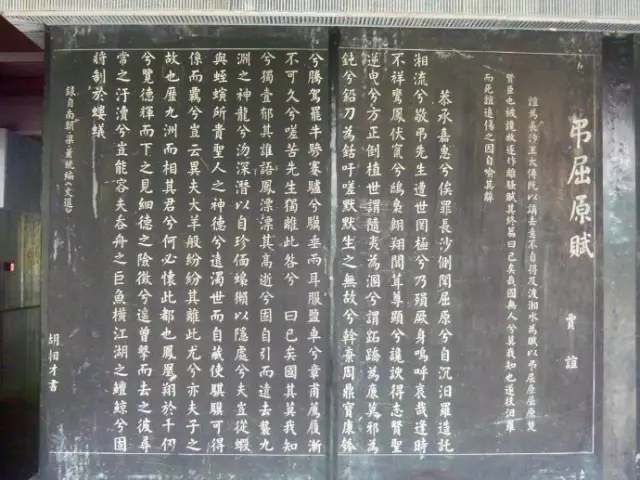 吊屈原賦
賈誼
誼為長沙王太傅既以謫去意不自得及渡湘水為賦以弔屈原屈原楚
賢臣也被讒放逐作離騷賦其終篇曰已矣哉國無人兮莫我知也遂投汨羅
而死誼追傷之因自喻其辭
恭承嘉惠兮俟罪長沙側聞屈原兮自沉汨羅造託
湘流兮敬弔先生遭世罔極兮乃殞厥身嗚呼哀哉逢時
不祥鸞鳳伏竄兮鴟梟翱翔闒茸尊顯兮讒諛得志賢聖
逆曳兮方正倒植世謂隨夷為溷兮謂跖蹻為廉莫邪為
鈍兮鉛刀為銛吁嗟默默生之無故兮斡棄周鼎寶康瓠
兮騰駕罷牛驂蹇驢兮驥垂兩耳服鹽車兮章甫薦履漸
不可久兮嗟苦先生獨離此咎兮 曰已矣國其莫我知
兮獨壹郁其誰語鳳漂漂其高逝兮固自引而遠去襲九
淵之神龍兮沕深潛以自珍偭蟂獺以隱處兮夫豈從蝦
與蛭螾所貴聖人之神德兮遠濁世而自藏使騏驥可得
係而羈兮豈云異夫犬羊般紛紛其離此尤兮亦夫子之
故也歷九洲而相其君兮何必懷此都也鳳凰翔於千仞
兮覽德輝而下之見細德之險徵兮遙曾擊而去之彼尋
常之汙瀆兮豈能容夫吞舟之巨魚橫江湖之鱣鯨兮固
將制於螻蟻
錄自南朝梁蕭統編《文選》
胡 才書